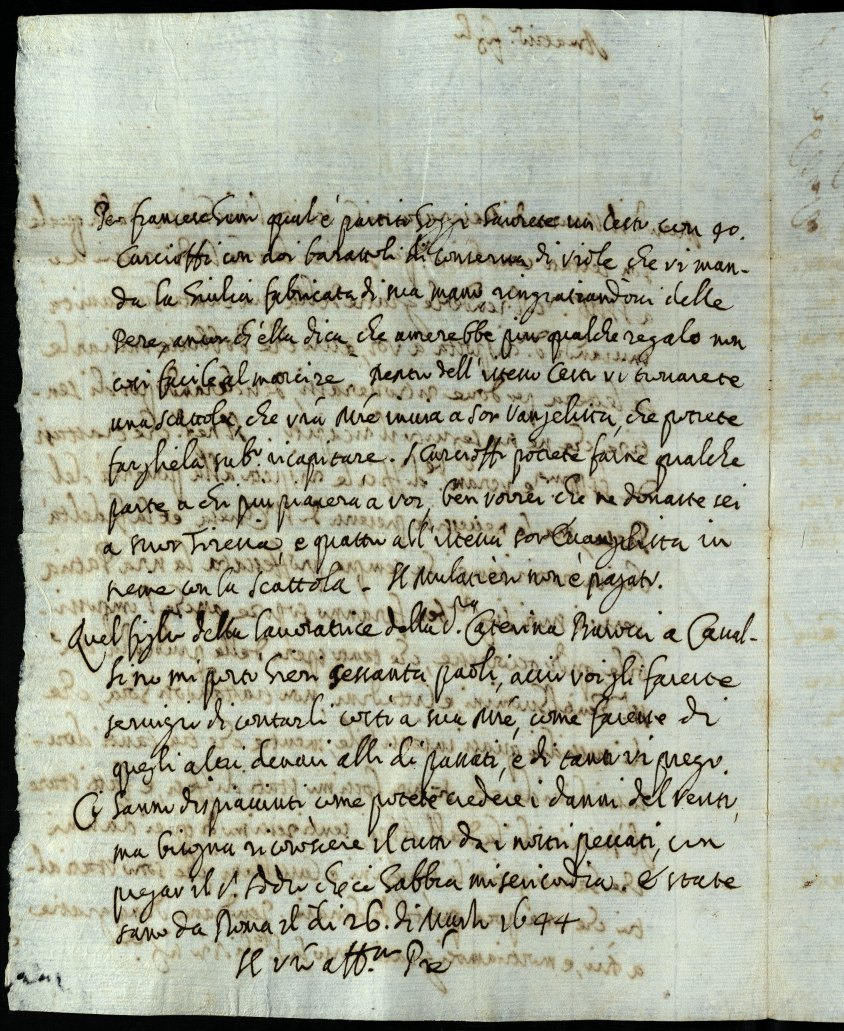 Per franceschini qual è partito hoggi havrete un Cesto con 40.
Carcioffi con doi barattoli di conserva di viole che vi man-
da la Giulia fabricata di sua mano, ringratiandovi delle
Pere, ancorch'ella dica che amerebbe piu qualche regalo non
così facile al marcire. Dentro dell'istesso Cesto vi trovarete
una scattola, che vrā Mrē invia a Sor Vangelista, che potrete
farghiela sub.º ricapitare. I Carcioffi potrete farne qualche
parte a chi piu piacera a voi, ben vorrei che ne donaste sei
a suor Tiresia, e quattro all'istessa sor Evangelista in
sieme con la Scattola. Il Mulatiere non è pagato.
Quel figlio della lavoratrice della S.ra Caterina Barocci a Caval-
lino mi portò heri sessanta paoli, acciò voi gli faceste
servigio di contarli costì a sua Mrē, come faceste di
quegli altri denari alli dì passati, e di tanto vi prego
Ci hanno dispiaciuti come potete credere i danni del vento,
ma bisogna riconoscere il tutto da i nostri peccati, con
pregar il S. Iddio che ci habbia misericordia. E state
sano da Roma il dì 26. di Marzo 1644
Il vrō aff.mo Prē